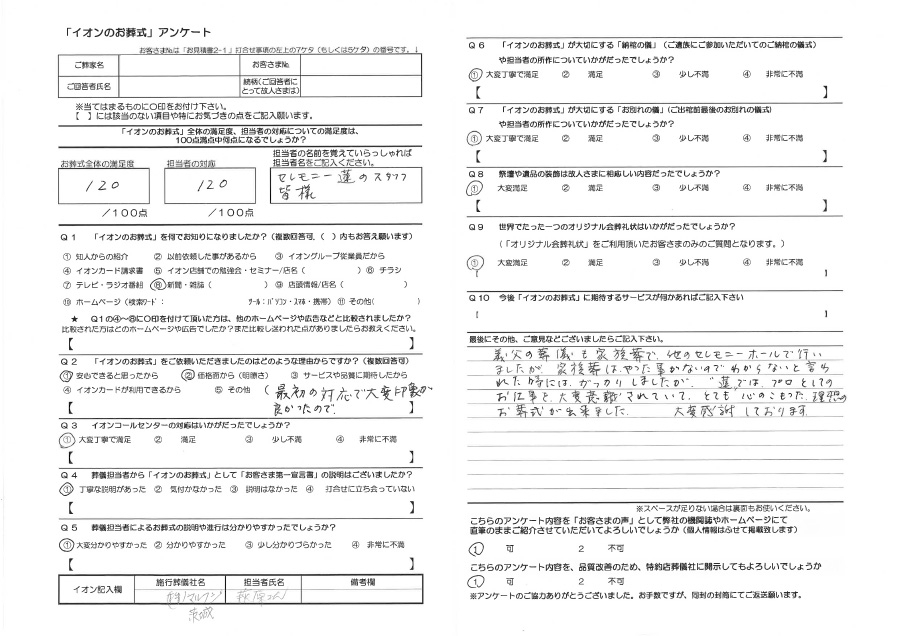 「イオンのお葬式」アンケート
お客さま№は「お見積書2-1」打合せ事項の左上の7ケタ（もしくは5ケタ）の番号です。↓
ご葬家名
お客さま№
ご回答者氏名
続柄(ご回答者にとって故人さまは)
※当てはまるものに○印をお付け下さい。
【 】には該当のない項目や特にお気づきの点をご記入願います。
「イオンのお葬式」全体の満足度、担当者の対応についての満足度は、
100点満点中何点になるでしょうか？
お葬式全体の満足度
担当者の対応
担当者の名前を覚えていらっしゃれば
担当者名をご記入ください。
120
120
セレモニー蓮のスタッフ
皆様
／100点
／100点
Q1 「イオンのお葬式」を何でお知りになりましたか？（複数回答可、（ ）内もお答え願います）
① 知人からの紹介 ② 以前依頼した事があるから ③ イオングループ従業員だから
④ イオンカード請求書 ⑤ イオン店舗での勉強会・セミナー/店名（ ） ⑥ チラシ
⑦ テレビ・ラジオ番組 ⑧新聞・雑誌（ ） ⑨ 店頭情報/店名（ ）
⑩ ホームページ（検索ワード： ツール：パソコン・スマホ・携帯） ⑪ その他( )
★ Q1の④～⑧に○印を付けて頂いた方は、他のホームページや広告などと比較されましたか？
比較された方はどのホームページや広告でしたか？また比較し迷われた点がありましたらお教えください。
【 】
Q2 「イオンのお葬式」をご依頼いただきましたのはどのような理由からですか？（複数回答可）
① 安心できると思ったから ② 価格面から（明瞭さ） ③ サービスや品質に期待したから
④ イオンカードが利用できるから ⑤ その他 (最初の対応で大変印象が
【 良かったので. 】
Q3 イオンコールセンターの対応はいかがだったでしょうか？
① 大変丁寧で満足 ② 満足 ③ 少し不満 ④ 非常に不満
【 】
Q4 葬儀担当者から「イオンのお葬式」として「お客さま第一宣言書」の説明はございましたか？
① 丁寧な説明があった ② 気付かなかった ③ 説明はなかった ④ 打合せに立ち会っていない
【 】
Q5 葬儀担当者によるお葬式の説明や進行は分かりやすかったでしょうか？
① 大変分かりやすかった ② 分かりやすかった ③ 少し分かりづらかった ④ 非常に不満
【 】
イオン記入欄
施行葬儀社名
担当者氏名
備考欄
茨城
Q6 「イオンのお葬式」が大切にする「納棺の儀」（ご遺族にご参加いただいてのご納棺の儀式）
や担当者の所作についていかがだったでしょうか？
① 大変丁寧で満足 ② 満足 ③ 少し不満 ④ 非常に不満
【 】
Q7 「イオンのお葬式」が大切にする「お別れの儀」（ご出棺前最後のお別れの儀式）
や担当者の所作についていかがだったでしょうか？
① 大変丁寧で満足 ② 満足 ③ 少し不満 ④ 非常に不満
【 】
Q8 祭壇や遺品の装飾は故人さまに相応しい内容だったでしょうか？
① 大変満足 ② 満足 ③ 少し不満 ④ 非常に不満
【 】
Q9 世界でたった一つのオリジナル会葬礼状はいかがだったでしょうか？
（「オリジナル会葬礼状」をご利用頂いたお客さまのみのご質問となります。）
① 大変満足 ② 満足 ③ 少し不満 ④ 非常に不満
【 】
Q10 今後「イオンのお葬式」に期待するサービスが何かあればご記入下さい
【 】
最後にその他、ご意見などございましたらご記入下さい。
義父の葬儀も家族葬で、他のセレモニーホールで行い
ましたが、家族葬は、やった事がないのでわからないと言わ
れた時には、がっかりしましたが、蓮では、プロとしての
お仕事を、大変意識されていて、とても心のこもった、理想の
お葬式が出来ました. 大変感謝しております
※スペースが足りない場合は裏面もお使いください。
こちらのアンケート内容を「お客さまの声」として弊社の機関誌やホームページにて
直筆のままご紹介させていただいてよろしいでしょうか（個人情報はふせて掲載致します）
1 可 2 不可
こちらのアンケート内容を、品質改善のため、特約店葬儀社に開示してもよろしいでしょうか
1 可 2 不可
※アンケートのご協力ありがとうございました。お手数ですが、同封の封筒にてご返送願います。